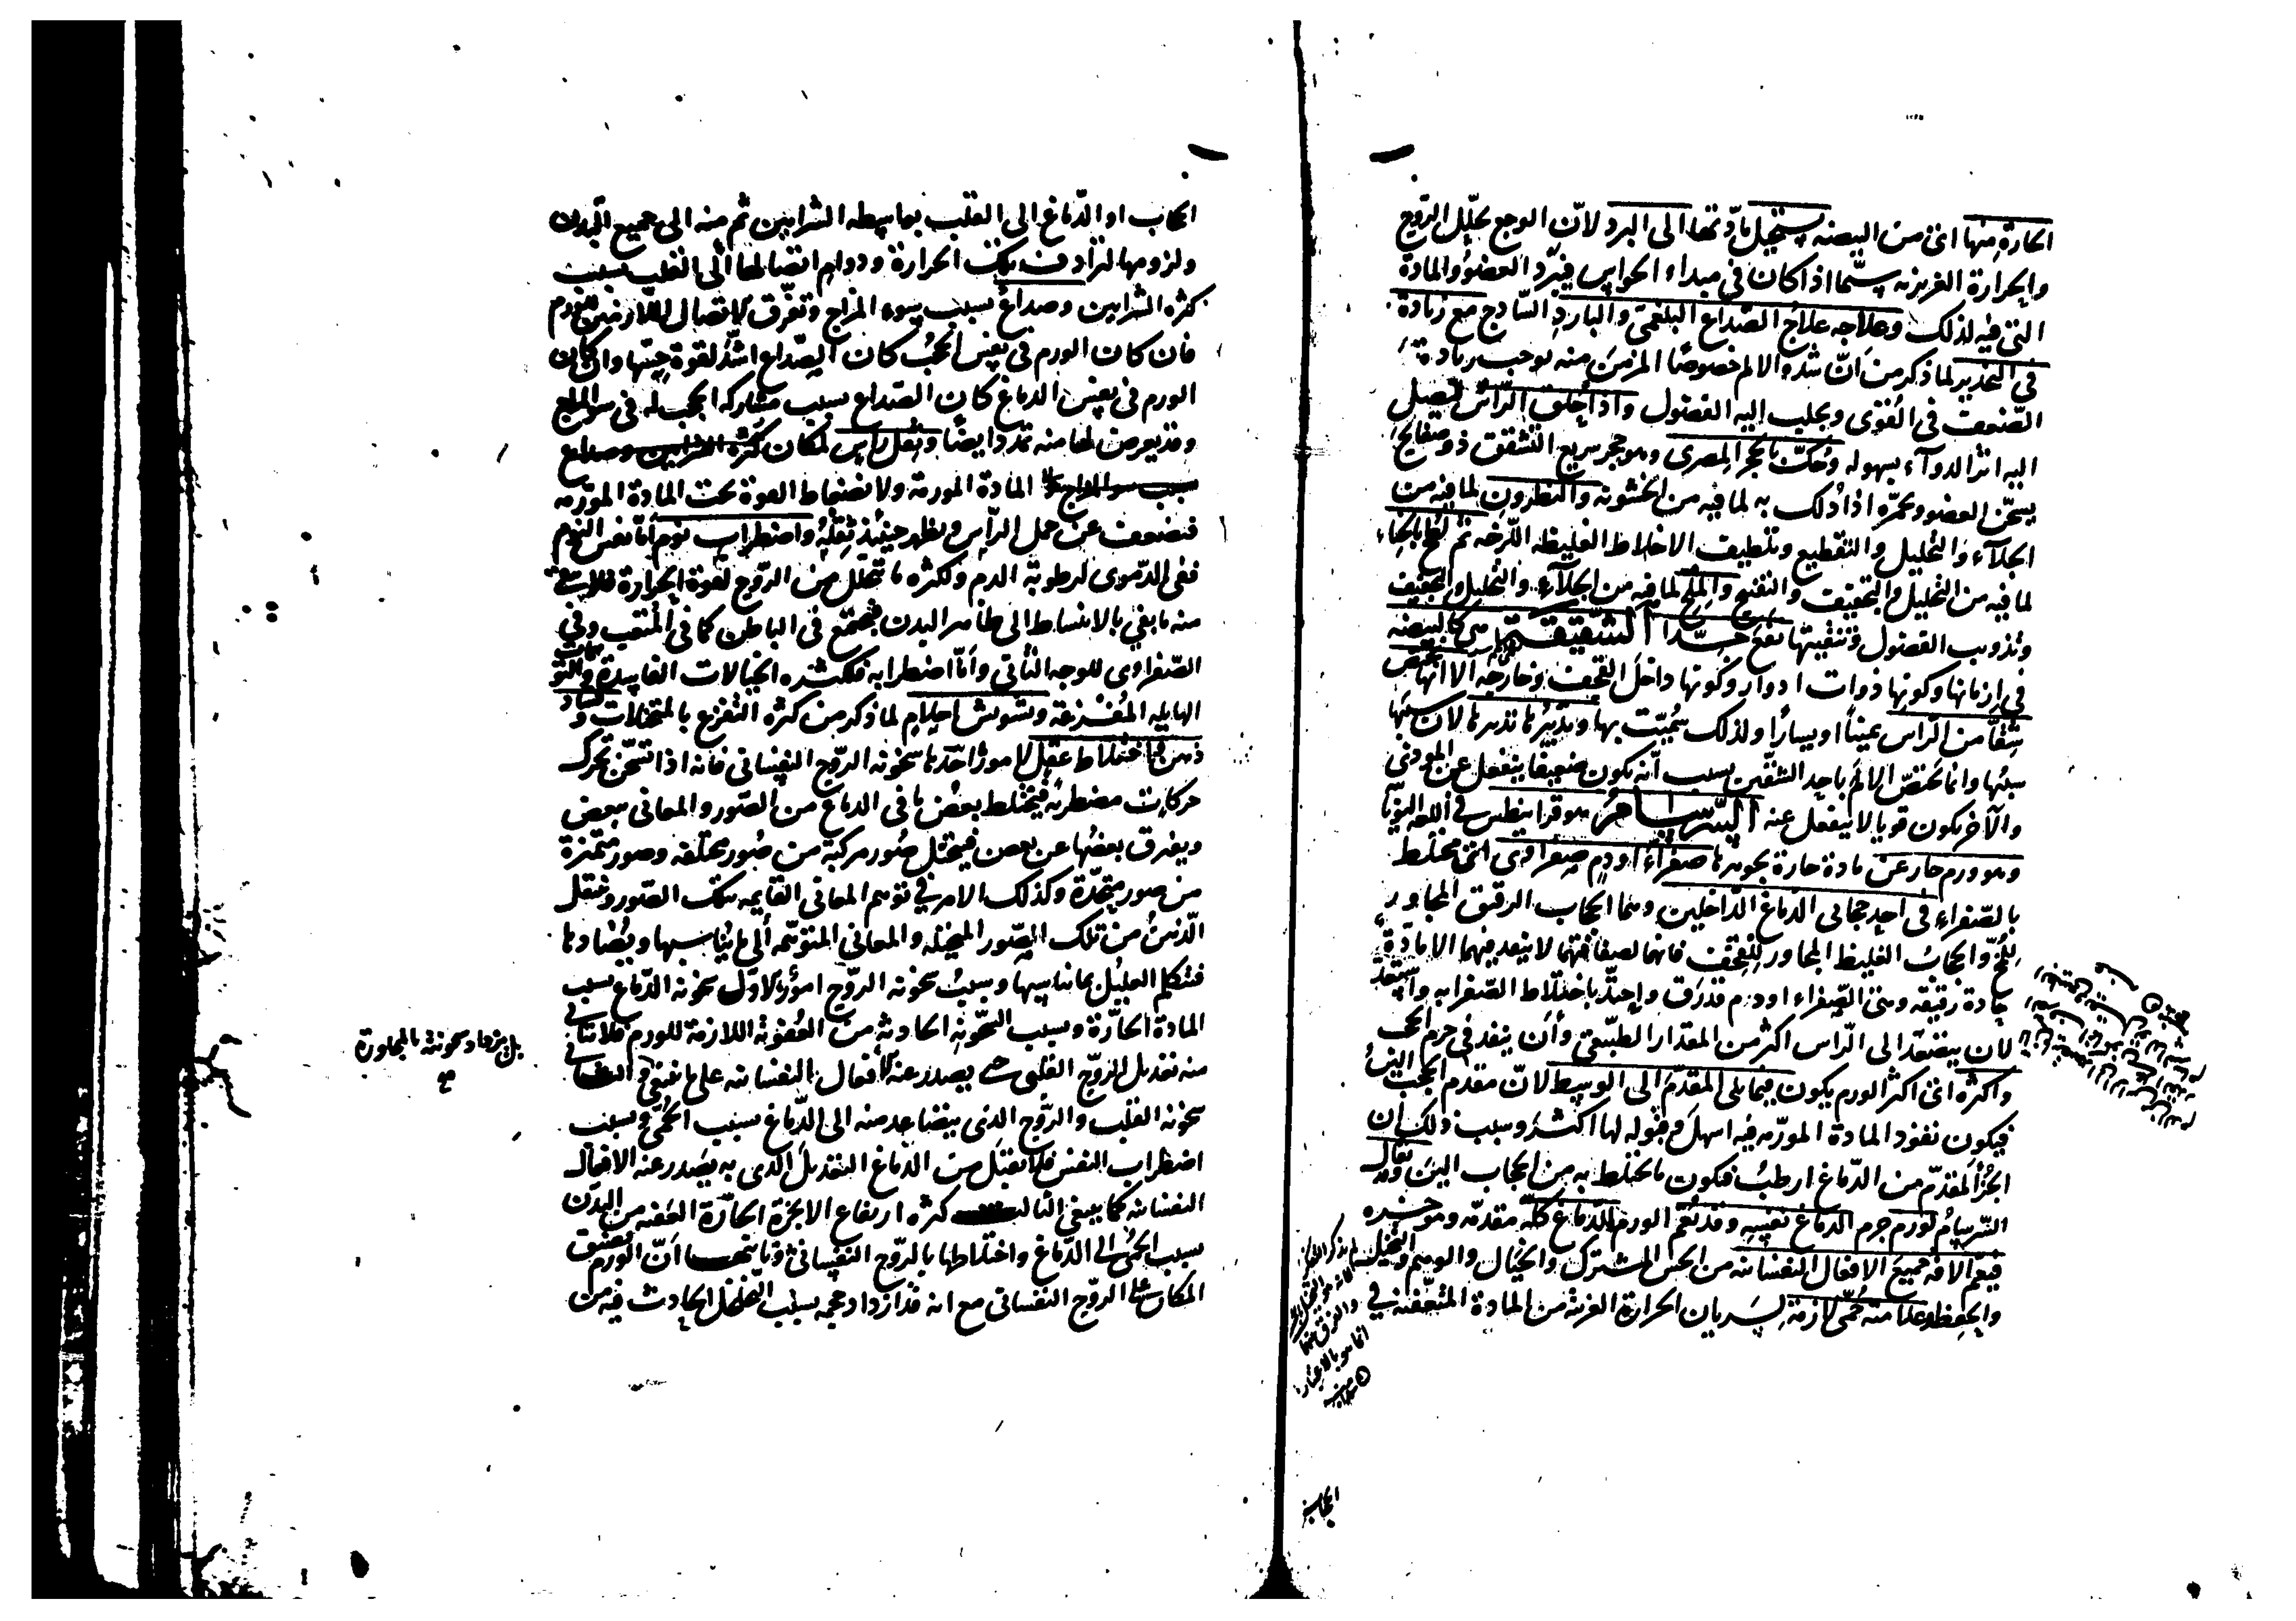 الحارة منها اى من البيضه يستحيل مادّتها الى البرد لانّ الوجع يحلّل الرّوح
والحرارة الغريزيه سيّما اذا كان فى مبداء الحواس فيبرّد العضو والمادة
التى فيه لذلك وعلاجه علاج الصّداع البلغمى والبارد السّاذج مع زيادة
فى التخدير لما ذكر من انّ شدة الالم خصوصًا المزمن منه يوجب زيادة
الضّعف فى القوى ويجلب اليه الفضول واذا حلق الرّأس ليصل
اليه اثر الدوآء بسهوله وحكّ بالحجر المصرى وهو حجر سريع التشقق ذو صفايح
يسخّن العضو ويحمّره اذا دلك به لما فيه من الخشونه والنطرون لما فيه من
الجلآء والتحليل والتقطيع وتلطيف الاخلاط الغليظه اللّزجه ثم لطخ بالحنّاء
لما فيه من التحليل والتجفيف والتفتيح والملح لما فيه من الجلآء والتحليل والتجفيف
وتذويب الفضول وتنقيتها نفع جدّا الشّقيقة هى كالبيضه
فى ازمانها وكونها ذوات ادوار وكونها داخل القحف وخارجه الا انها تختص
شقّا من الرّاس يمينًا او يسارًا ولذلك سُمّيت بها وتدبيرها تدبيرها لان سببها
سببها وانما يختصّ الالم باحد الشقّين بسبب انّه يكون ضعيفا ينفعل عن الموذى
والآخر يكون قويا لا ينفعل عنه السّرسام هو قرانيطس فى اللغه اليونانية
وهو ورم حار عن مادة حارة بجوهرها صفراء او دم صفراوى اى مختلط
بالصّفراء فى احد حجابى الدماغ الدّاخلين وهما الحجاب الرقيق المجاور
للمخّ والحجاب الغليظ المجاور للقحف فانهما لصفاقتهما لا ينفذ فيهما الا مادّة
حادة رقيقه وهى الصّفراء او دم قد رقّ واحتدّ باختلاط الصّفرا به واستعدّ
لان يتصعّد الى الرّاس اكثر من المقدار الطبيعى وأن ينفذ فى جرم الحجب
واكثره اى اكثر الورم يكون فيما يلى المقدّم الى الوسط لانّ مقدم الحجب الين
فيكون نفوذ المادة المورّمه فيه اسهل وقبوله لها اكثر وسبب ذلك ان
الجزء المقدّم من الدّماغ ارطب فيكون ما يختلط به من الحجاب الين وقد يقال
السّرسام لورم جرم الدماغ نفسه وقد يعمّ الورم الدّماغ كلّه مقدّمه وموخّره
فيعم الافه جميع الافعال النفسانيه من الحس المشترك والخيال والوهم والتخيل
والحفظ وعلامته حمّى لازمة لسريان الحرارة الغريبه من المادة المتعفّنه فى
الحجاب
الحجاب او الدّماغ الى القلب بواسطه الشرايين ثم منه الى جميع البدن
ولزومها لترادف تلك الحرارة ودوام اتصالها الى القلب بسبب
كثره الشرايين وصداع بسبب سوء المزاج وتفرّق الاتصال اللازمين للورم
فان كان الورم فى نفس الحجب كان الصّداع اشد لقوة حسّها وان كان
الورم فى نفس الدماغ كان الصّداع بسبب مشاركه الحجب له فى سوء المزاج
وقد يعرض لها منه تمدد ايضًا وثقل راس لمكان
المادة المورمة ولانضغاط القوة تحت المادة المورّمه
فتضعف عن حمل الرّأس ويظهر حينئذ ثقله واضطراب نوم امّا نفس النوم
ففى الدّموى لرطوبة الدم ولكثره ما تحلّل من الرّوح لقوة الحرارة فلا يبقى
منه ما يفى بالانبساط الى ظاهر البدن فيجتمع فى الباطن كما فى المُتعب وفى
الصّفراوى للوجه الثّانى وأمّا اضطرابه فلكثره الخيالات الفاسدة
الهايله المُفزعة وتشوش احلام لما ذكر من كثره التفزع بالمتخيلات وفساد
ذهن واختلاط عقل لامور احدها سخونه الرّوح النفسانى فانه اذا تسخّن تحرّك
حركات مضطربة فيختلط بعض ما فى الدماغ من الصّور والمعانى ببعض
ويفرق بعضها عن بعض فيتخيّل صُور مركبة من صُور مختلفه وصور متميزة
من صور متّحدة وكذلك الامر فى توهم المعانى القايمه بتلك الصّور وينتقل
الذهن من تلك الصّور المتخيله والمعانى المتوهّمه الى ما يناسبها ويُضادها
فيتكلم العليل بما يناسبها وسبب سخونه الرّوح امور الاوّل سخونه الدّماغ بسبب
المادة الحارّة وبسبب السّخونه الحادثه من العُفونة اللازمة للورم فلا يتاتى
منه تعديل الرّوح القلبى حتى يصدر عنه الافعال النفسانيه على ما ينبغى الثانى
سخونه القلب والرّوح الذى يتصاعد منه الى الدّماغ بسبب الحُمّى وبسبب
اضطراب النفس فلا يقبل من الدّماغ التعديل الذى به يصدر عنه الافعال
النفسانيه كما ينبغى الثالث كثره ارتفاع الابخرة الحارّة العفنه من البدن
بسبب الحمّى الى الدّماغ واختلاطها بالرّوح النفسانى وثانيها انّ الورم يضيّق
المكان على الرّوح النفسانى مع انه قد ازداد حجمه بسبب التخلخل الحادث فيه من
بل يزداد سخونته بالمجاورة
صح